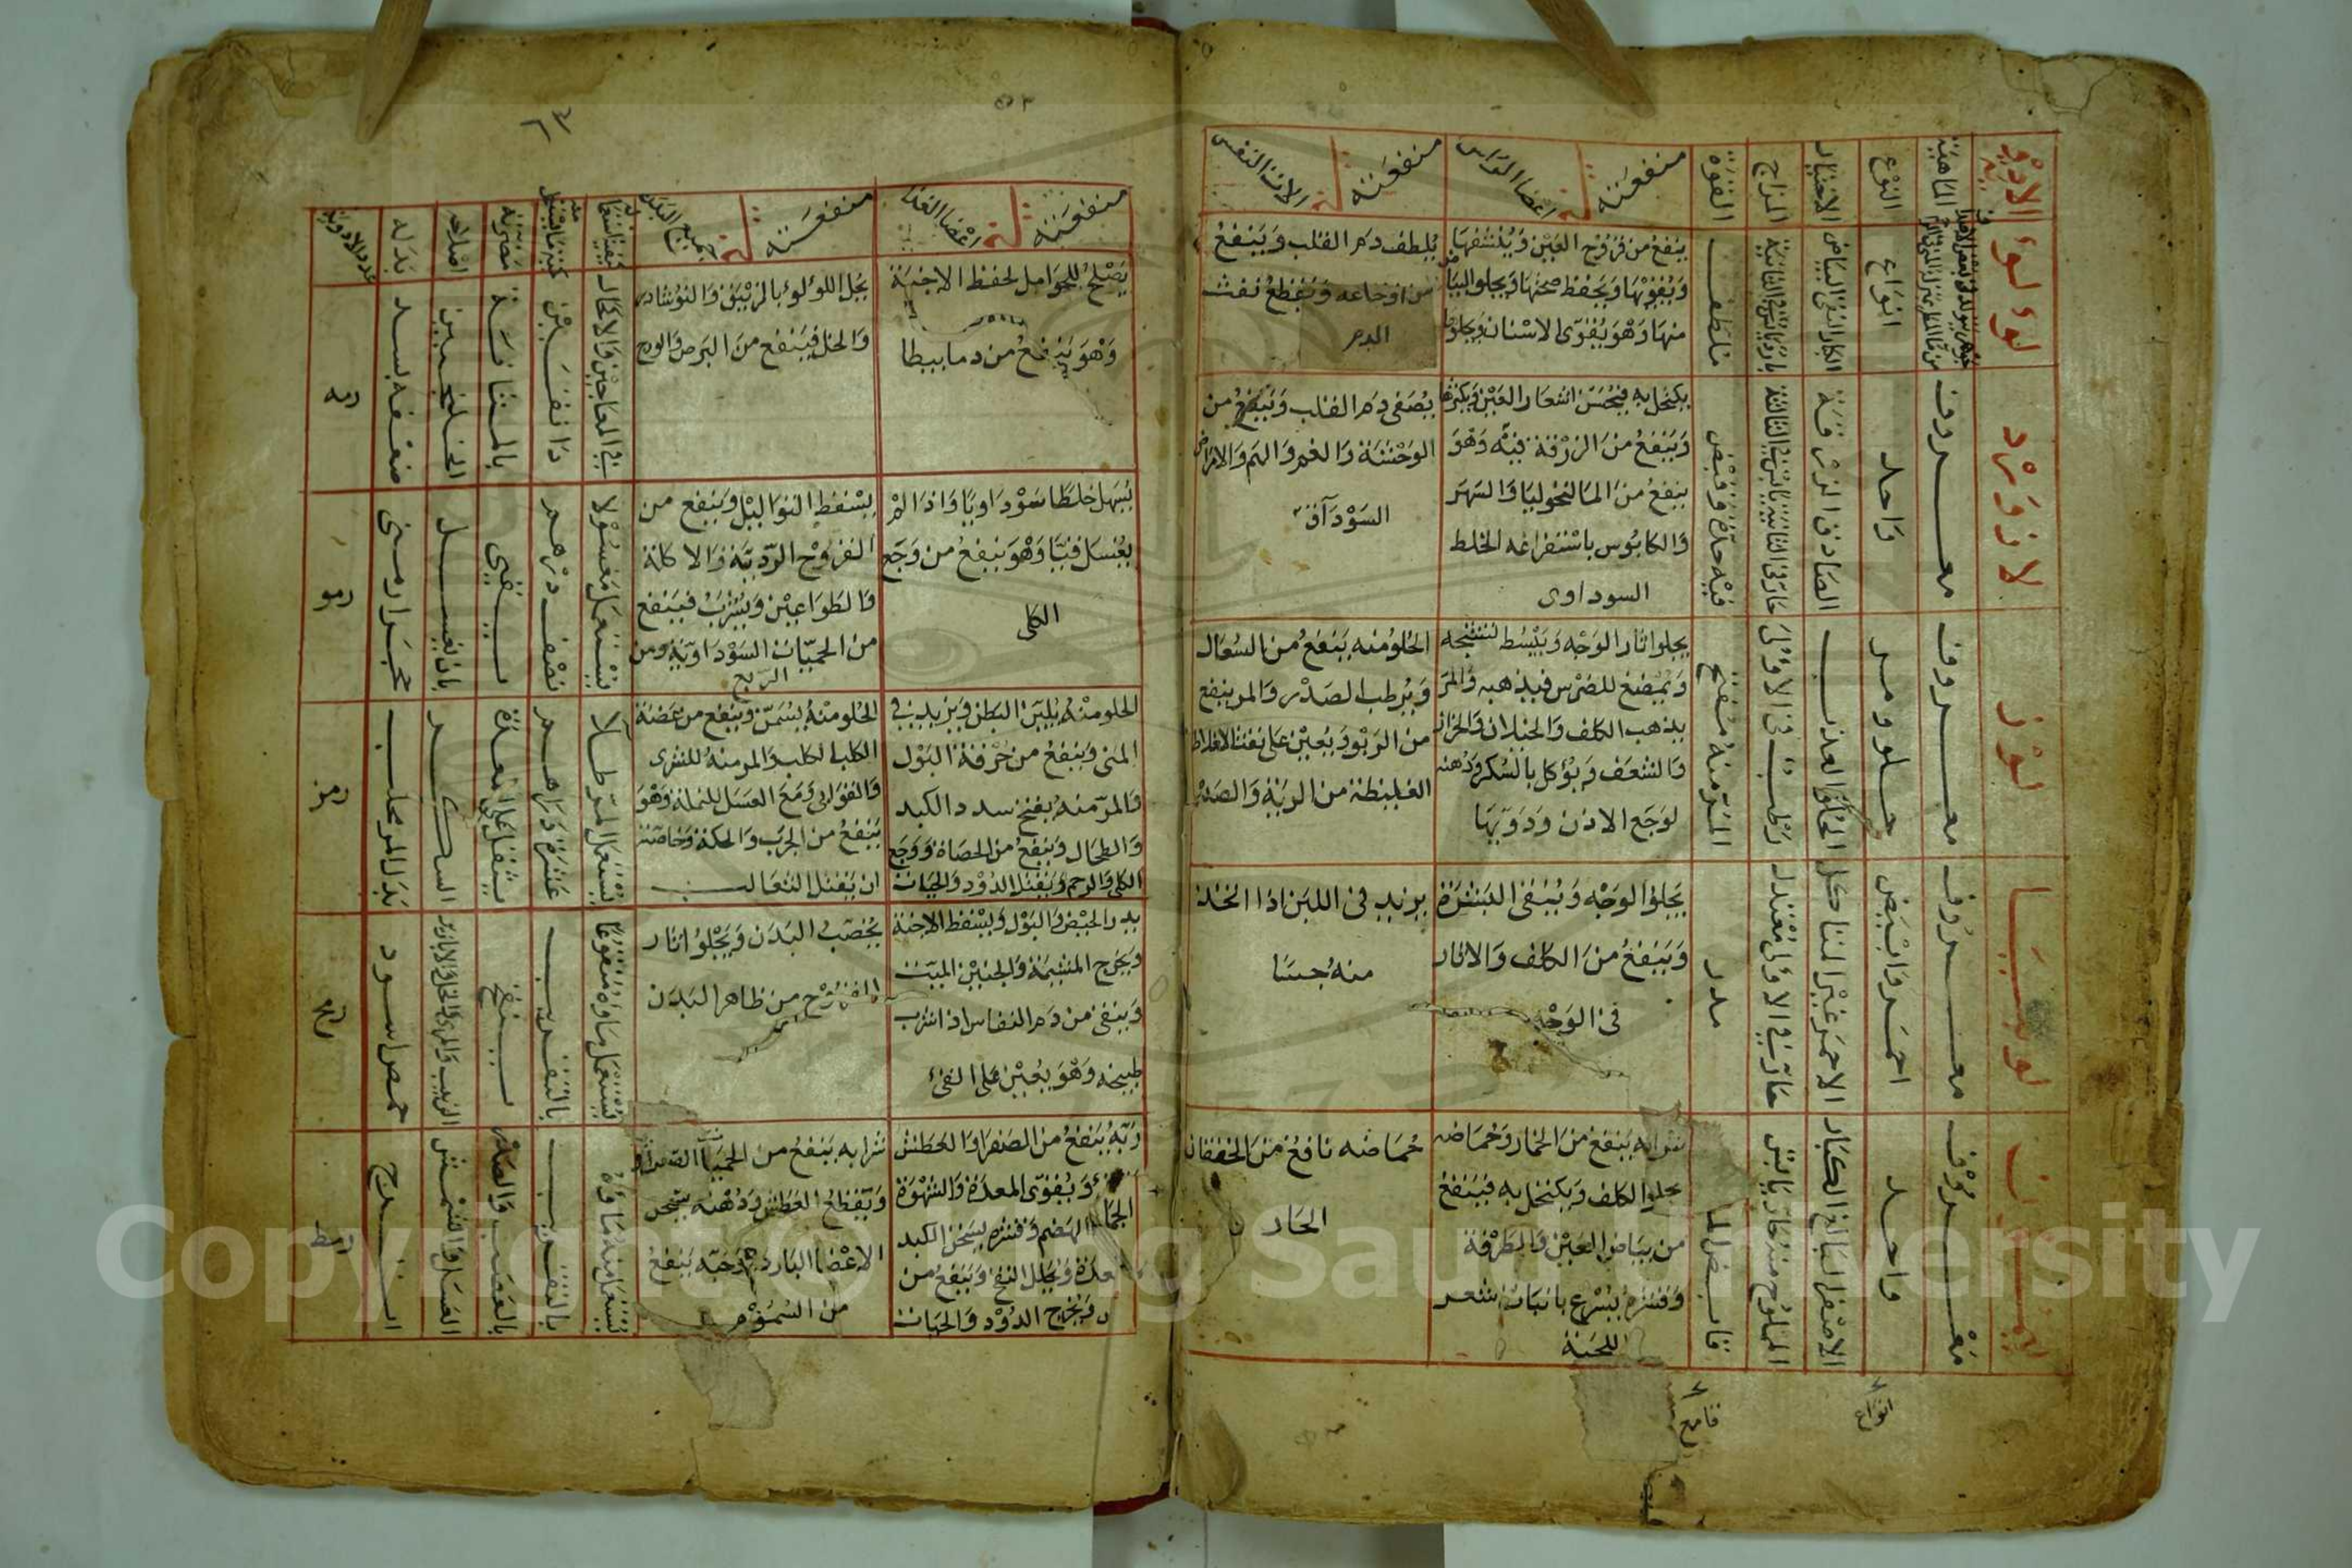 الادوية
الماهية
النوع
الاختيار
المزاج
القوة
منفعته في اعضا الراس
منفعته في الات النفس
لؤلؤ
انواع
الكبار النقى البياض
ملطف
ينفع من قروح العين وينشفها
ويقويها ويحفظ صحتها ويجلو البياض
منها وهو يقوى الاسنان ويجلوها
يلطف دم القلب وينفع
من اوجاعه ويقطع نفث
الدم
لازورد
معروف
واحد
الصادق الزرقة
حار في الثانية يابس في الثالثة
فيه حدة وقبض
يكتحل به فيحسن اشعار العين ويكثرها
وينفع من الزرقة فيه وهو
ينفع من المالنخوليا والسهر
والكابوس باستفراغه الخلط
السوداوى
يصفى دم القلب وينفع من
الوحشة والغم والهم والامراض
السوداوية
لوز
معروف
حلو ومر
الحلو العذب
رطب في الاولى
المر منه مفتح
يجلو اثار الوجه ويبسط تشنجه
ويمضغ للضرس فيذهبه والمر
يذهب الكلف والخيلان والحزاز
والشعف ويؤكل بالسكر ودهنه
لوجع الاذن ودويها
الحلو منه ينفع من السعال
ويرطب الصدر والمر ينفع
من الربو ويعين على نفث الاخلاط
الغليظة من الرية والصدر
لوبيا
معروف
احمر وابيض
الاحمر غير المتاكل
حار في الاولى معتدل
مدر
يجلو الوجه وينقى البشرة
وينفع من الكلف والاثار
في الوجه
يزيد في اللبن اذا اتخذ
منه حسا
معروف
واحد
الاصفر البالغ الكبار
المملوح منه حار يابس
شرابه ينفع من الخمار وحماضه
يجلو الكلف ويكتحل به فينفع
من بياض العين والطرفة
وقشره يسرع بانبات شعر
اللحية
حماضه نافع من الخفقان
الحار
منفعته في اعضا الغذا
منفعته في جميع البدن
كيفية استعماله
كمية ما يستعمل منه
مضرته
اصلاحه
بدله
عدد الادوية
يصلح للحوامل لحفظ الاجنة
وهو ينفع من دمابيطا
يحل اللؤلؤ بالزيبق والنوشادر
والخل فينفع من البرص والوضح
في المعاجين والاكحال
دانقين
بالمثانة
رمه
يسهل خلطا سوداويا واذا لم
يغسل قيا وهو ينفع من وجع
الكلى
يسقط الثواليل وينفع من
القروح الردية والاكلة
والطواعين ويشرب فينفع
من الحميات السوداوية ومن
الربع
يستعمل مغسولا
نصف درهم
يقيى
بان يغسل
حجر ارمنى
رمو
الحلو منه يلين البطن ويزيد في
المنى وينفع من حرقة البول
والمر منه يفتح سدد الكبد
والطحال وينفع من الحصاة ووجع
الكلى والرحم ويقتل الدود والحيات
الحلو منه يسمن وينفع من عضة
الكلب الكلب والمر منه للشرى
والقوابى ومع العسل للنملة وهو
ينفع من الجرب والحكة وخاصته
ان يقتل الثعالب
عشرة دراهم
يثقل على المعدة
السكر
بدل المر محلب
رمز
يدر الحيض والبول ويسقط الاجنة
ويخرج المشيمة والجنين الميت
وينقى من دم النفاس اذا شرب
طبيخه وهو يعين على القيء
يخصب البدن ويجلو اثار
القروح من ظاهر البدن
يستعمل ماؤه منقوعا
بالتقريب
ينفخ
حمص اسود
رمح
وينفع من الصفرا والعطش
ويقوى المعدة والشهوة
الهضم وقشره يسخن الكبد
والمعدة ويحلل النفخ وينفع من
ويخرج الدود والحيات
شرابه ينفع من الحميات
ويقطع العطش ودهنه يسخن
الاعضا الباردة وحبه ينفع
من السموم
يستعمل منه ماؤه
بالتقريب
بالعصب والصدر
العسل والمشمش
اترج
رمط
Copyright © King Saud University